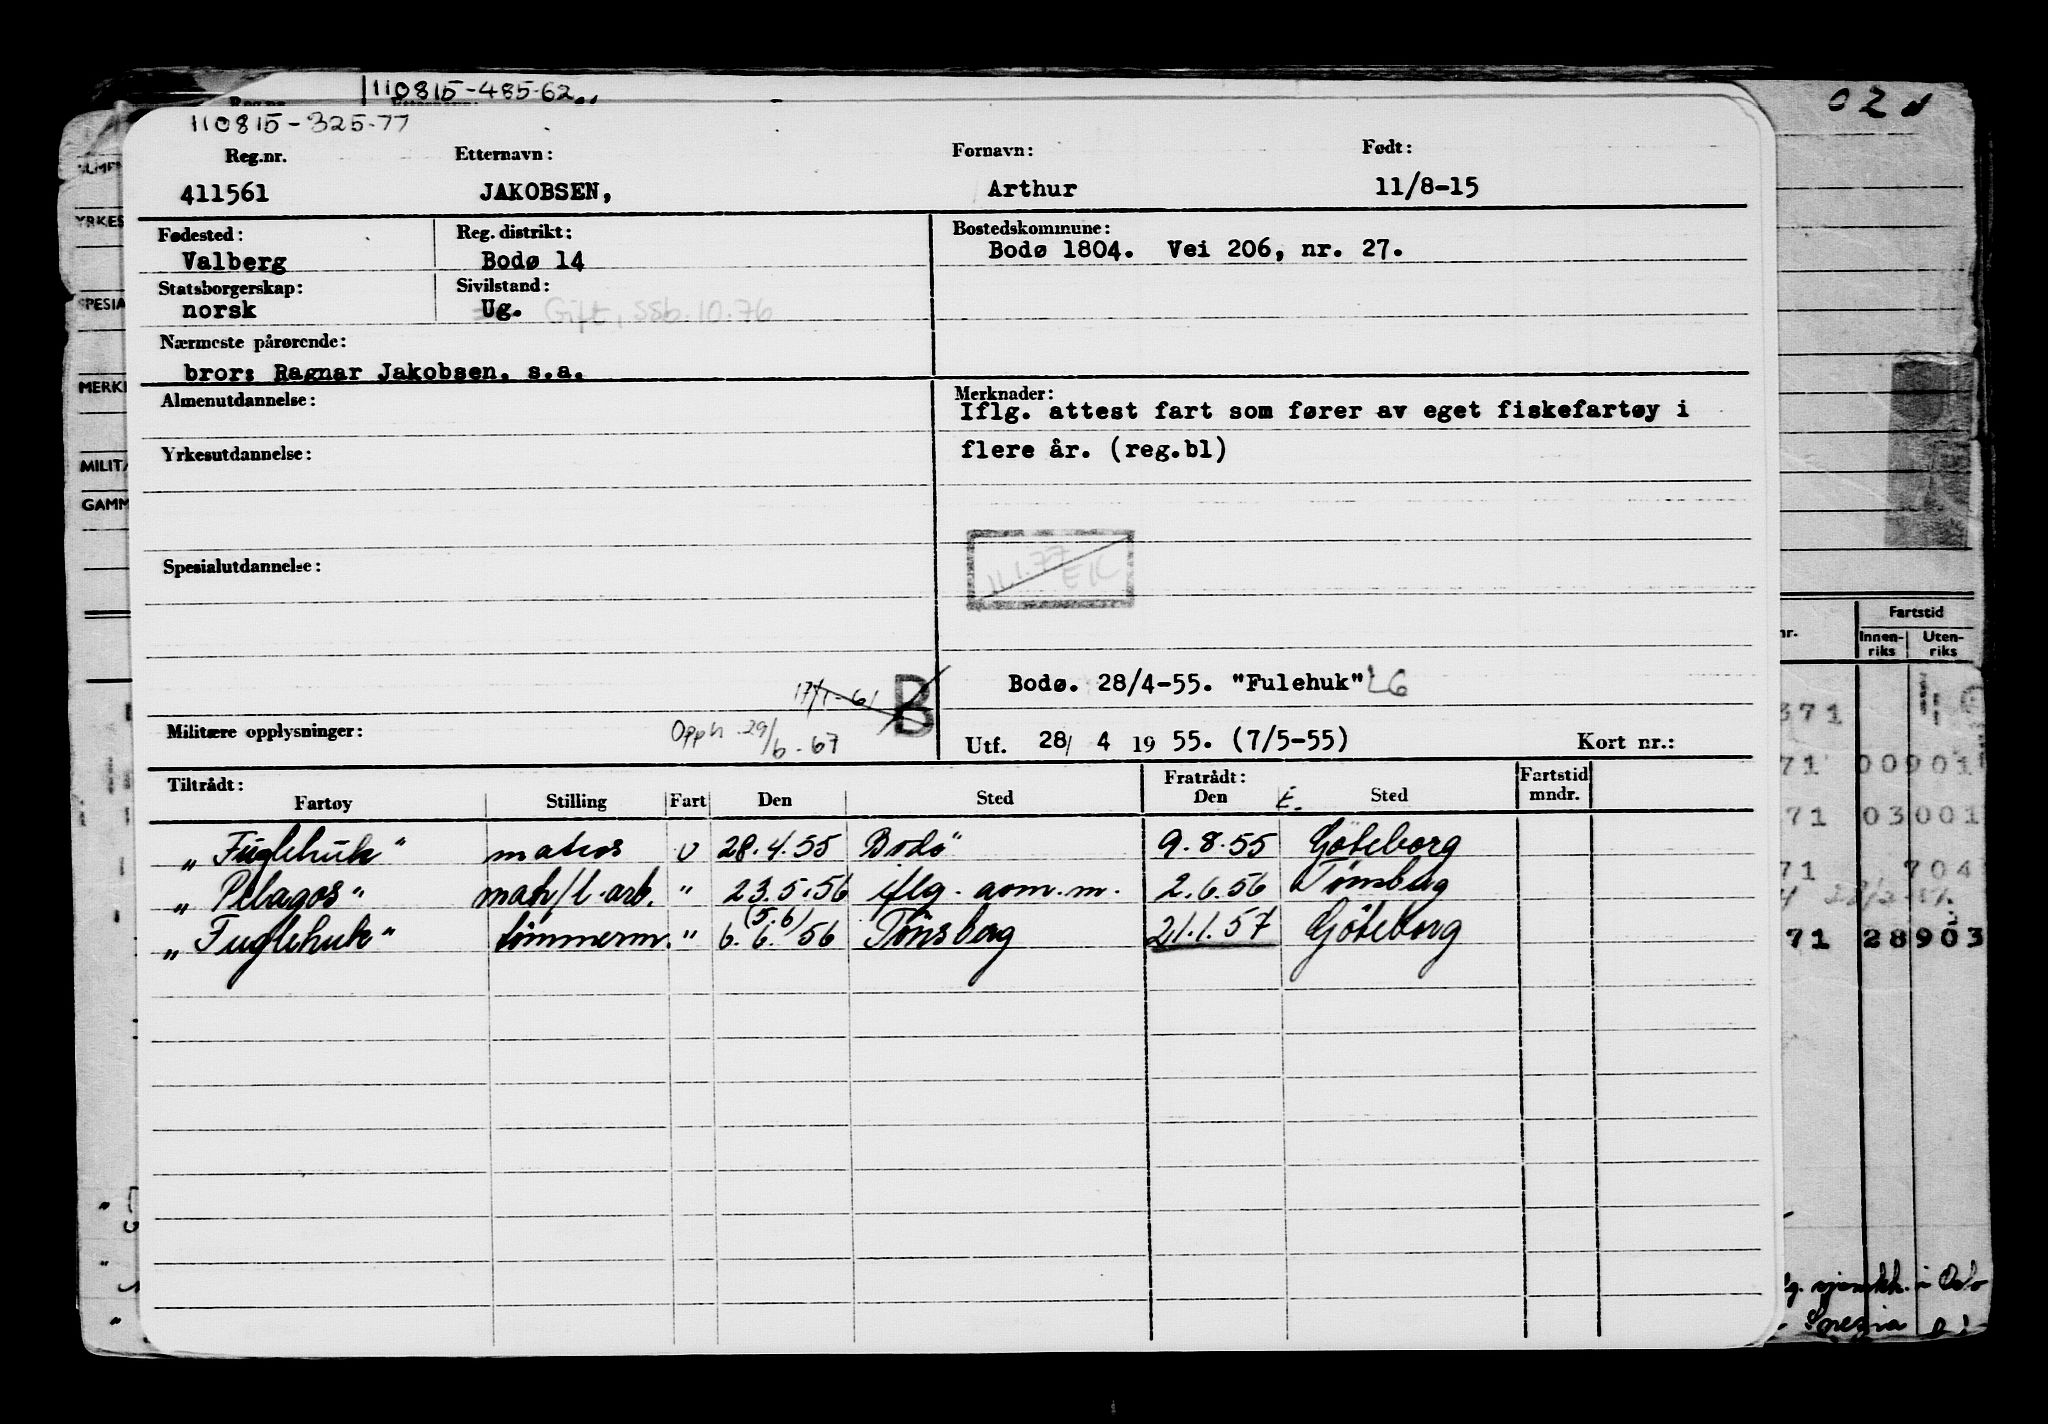 110815-485-62
02
110815-325-77
Reg.nr. Etternavn: Fornavn: Født:
411561 JAKOBSEN, Arthur 11/8-15
Fødested: Reg. distrikt: Bostedskommune:
Valberg Bodø 14 Bodø 1804. Vei 206, nr. 27.
Statsborgerskap: Sivilstand:
norsk Ug. Gift, SSb. 10.76
Nærmeste pårørende:
bror: Ragnar Jakobsen, s.a.
Almenutdannelse: Merknader:
Iflg. attest fart som fører av eget fiskefartøy i
Yrkesutdannelse: flere år. (reg.bl)
11.1.77 EK
Spesialutdannelse:
17/1-61 B Bodø. 28/4-55. "Fulehuk" LG
Militære opplysninger: Opph. 29/6-67 Utf. 28/ 4 19 55. (7/5-55) Kort nr.:
Tiltrådt: Fratrådt: Fartstid
Fartøy Stilling Fart Den Sted Den Sted mndr.
"Fuglehuk" matros u 28.4.55 Bodö 9.8.55 Göteborg
"Pelagos" matr/l.arb. " 23.5.56 iflg. aom.m. 2.6.56 Tønsberg
(5.6)
"Fuglehuk" tømmerm. " 6.6.56 Tønsberg 21.1.57 Göteborg
YRKES
SPESIA
MERK
MILITÆ
GAMM
nr. Fartstid
Innen-riks Uten-riks
371
71 00901
71 03001
71 704
71 28903
i Oslo
Spezia